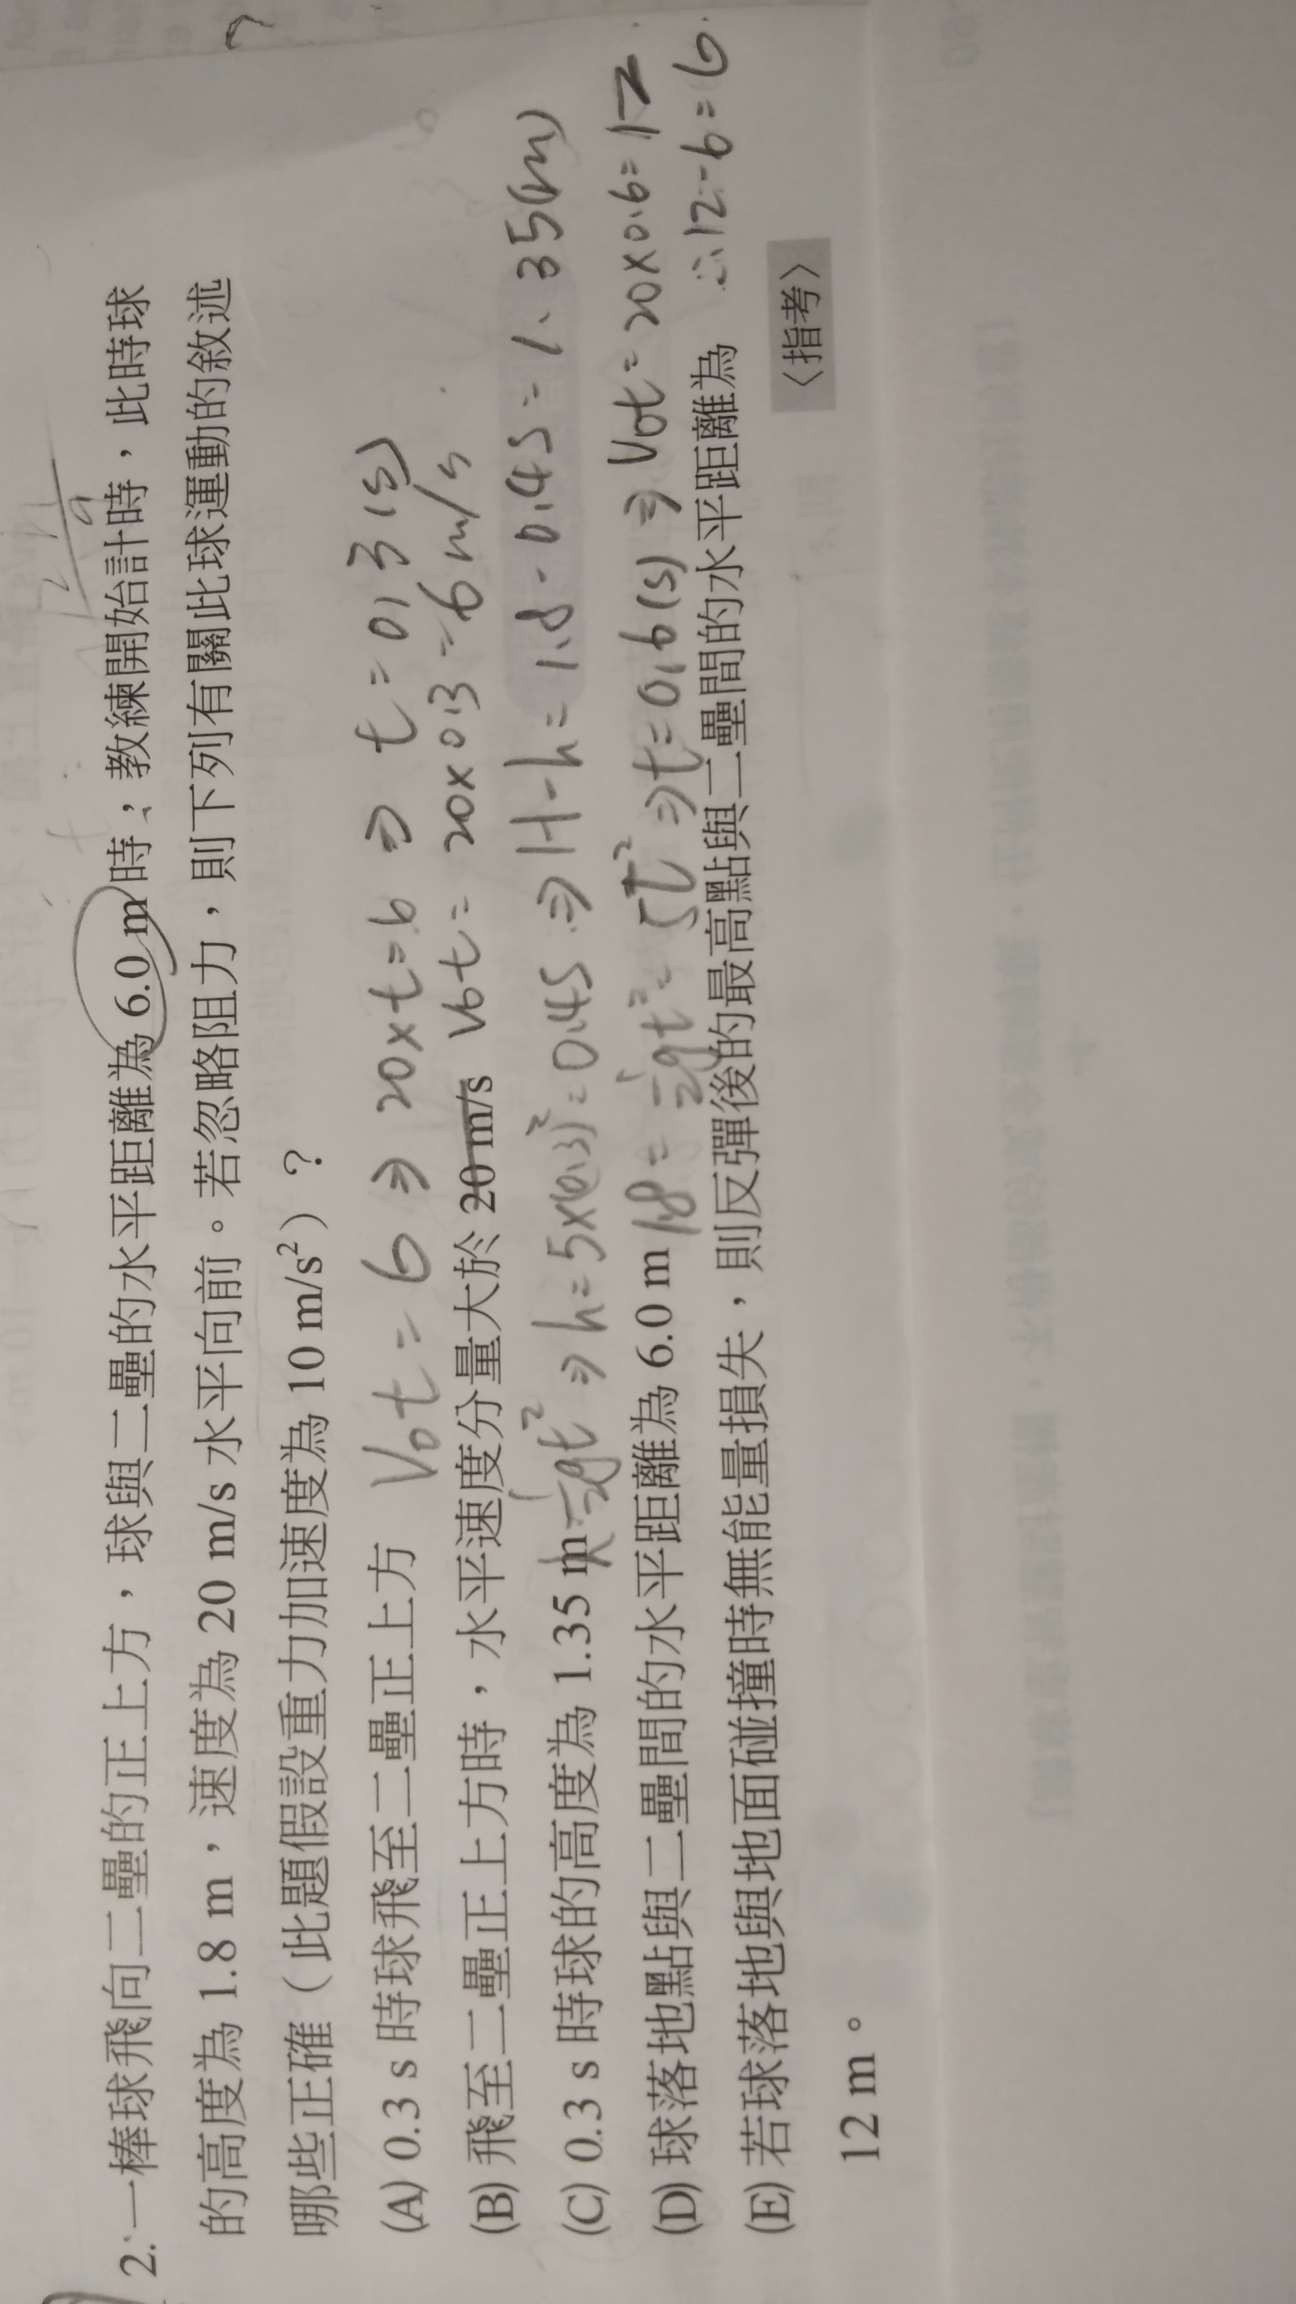 2. 一棒球飛向二壘的正上方，球與二壘的水平距離為 6.0 m 時，教練開始計時，此時球
的高度為 1.8 m，速度為 20 m/s 水平向前。若忽略阻力，則下列有關此球運動的敘述
哪些正確（此題假設重力加速度為 10 m/s²）？
(A) 0.3 s 時球飛至二壘正上方 V₀t = 6 ⇒ 20×t=6 ⇒ t = 0.3 (s)
(B) 飛至二壘正上方時，水平速度分量大於 20 m/s V₀t = 20×0.3 = 6 m/s
(C) 0.3 s 時球的高度為 1.35 m ½gt² ⇒ h = 5×(0.3)² = 0.45 ⇒ H-h = 1.8 - 0.45 = 1.35(m)
(D) 球落地點與二壘間的水平距離為 6.0 m 1.8 = ½gt² = 5t² ⇒ t = 0.6(s) ⇒ V₀t = 20×0.6 = 12
∴12-6=6
(E) 若球落地與地面碰撞時無能量損失，則反彈後的最高點與二壘間的水平距離為
12 m。
〈指考〉